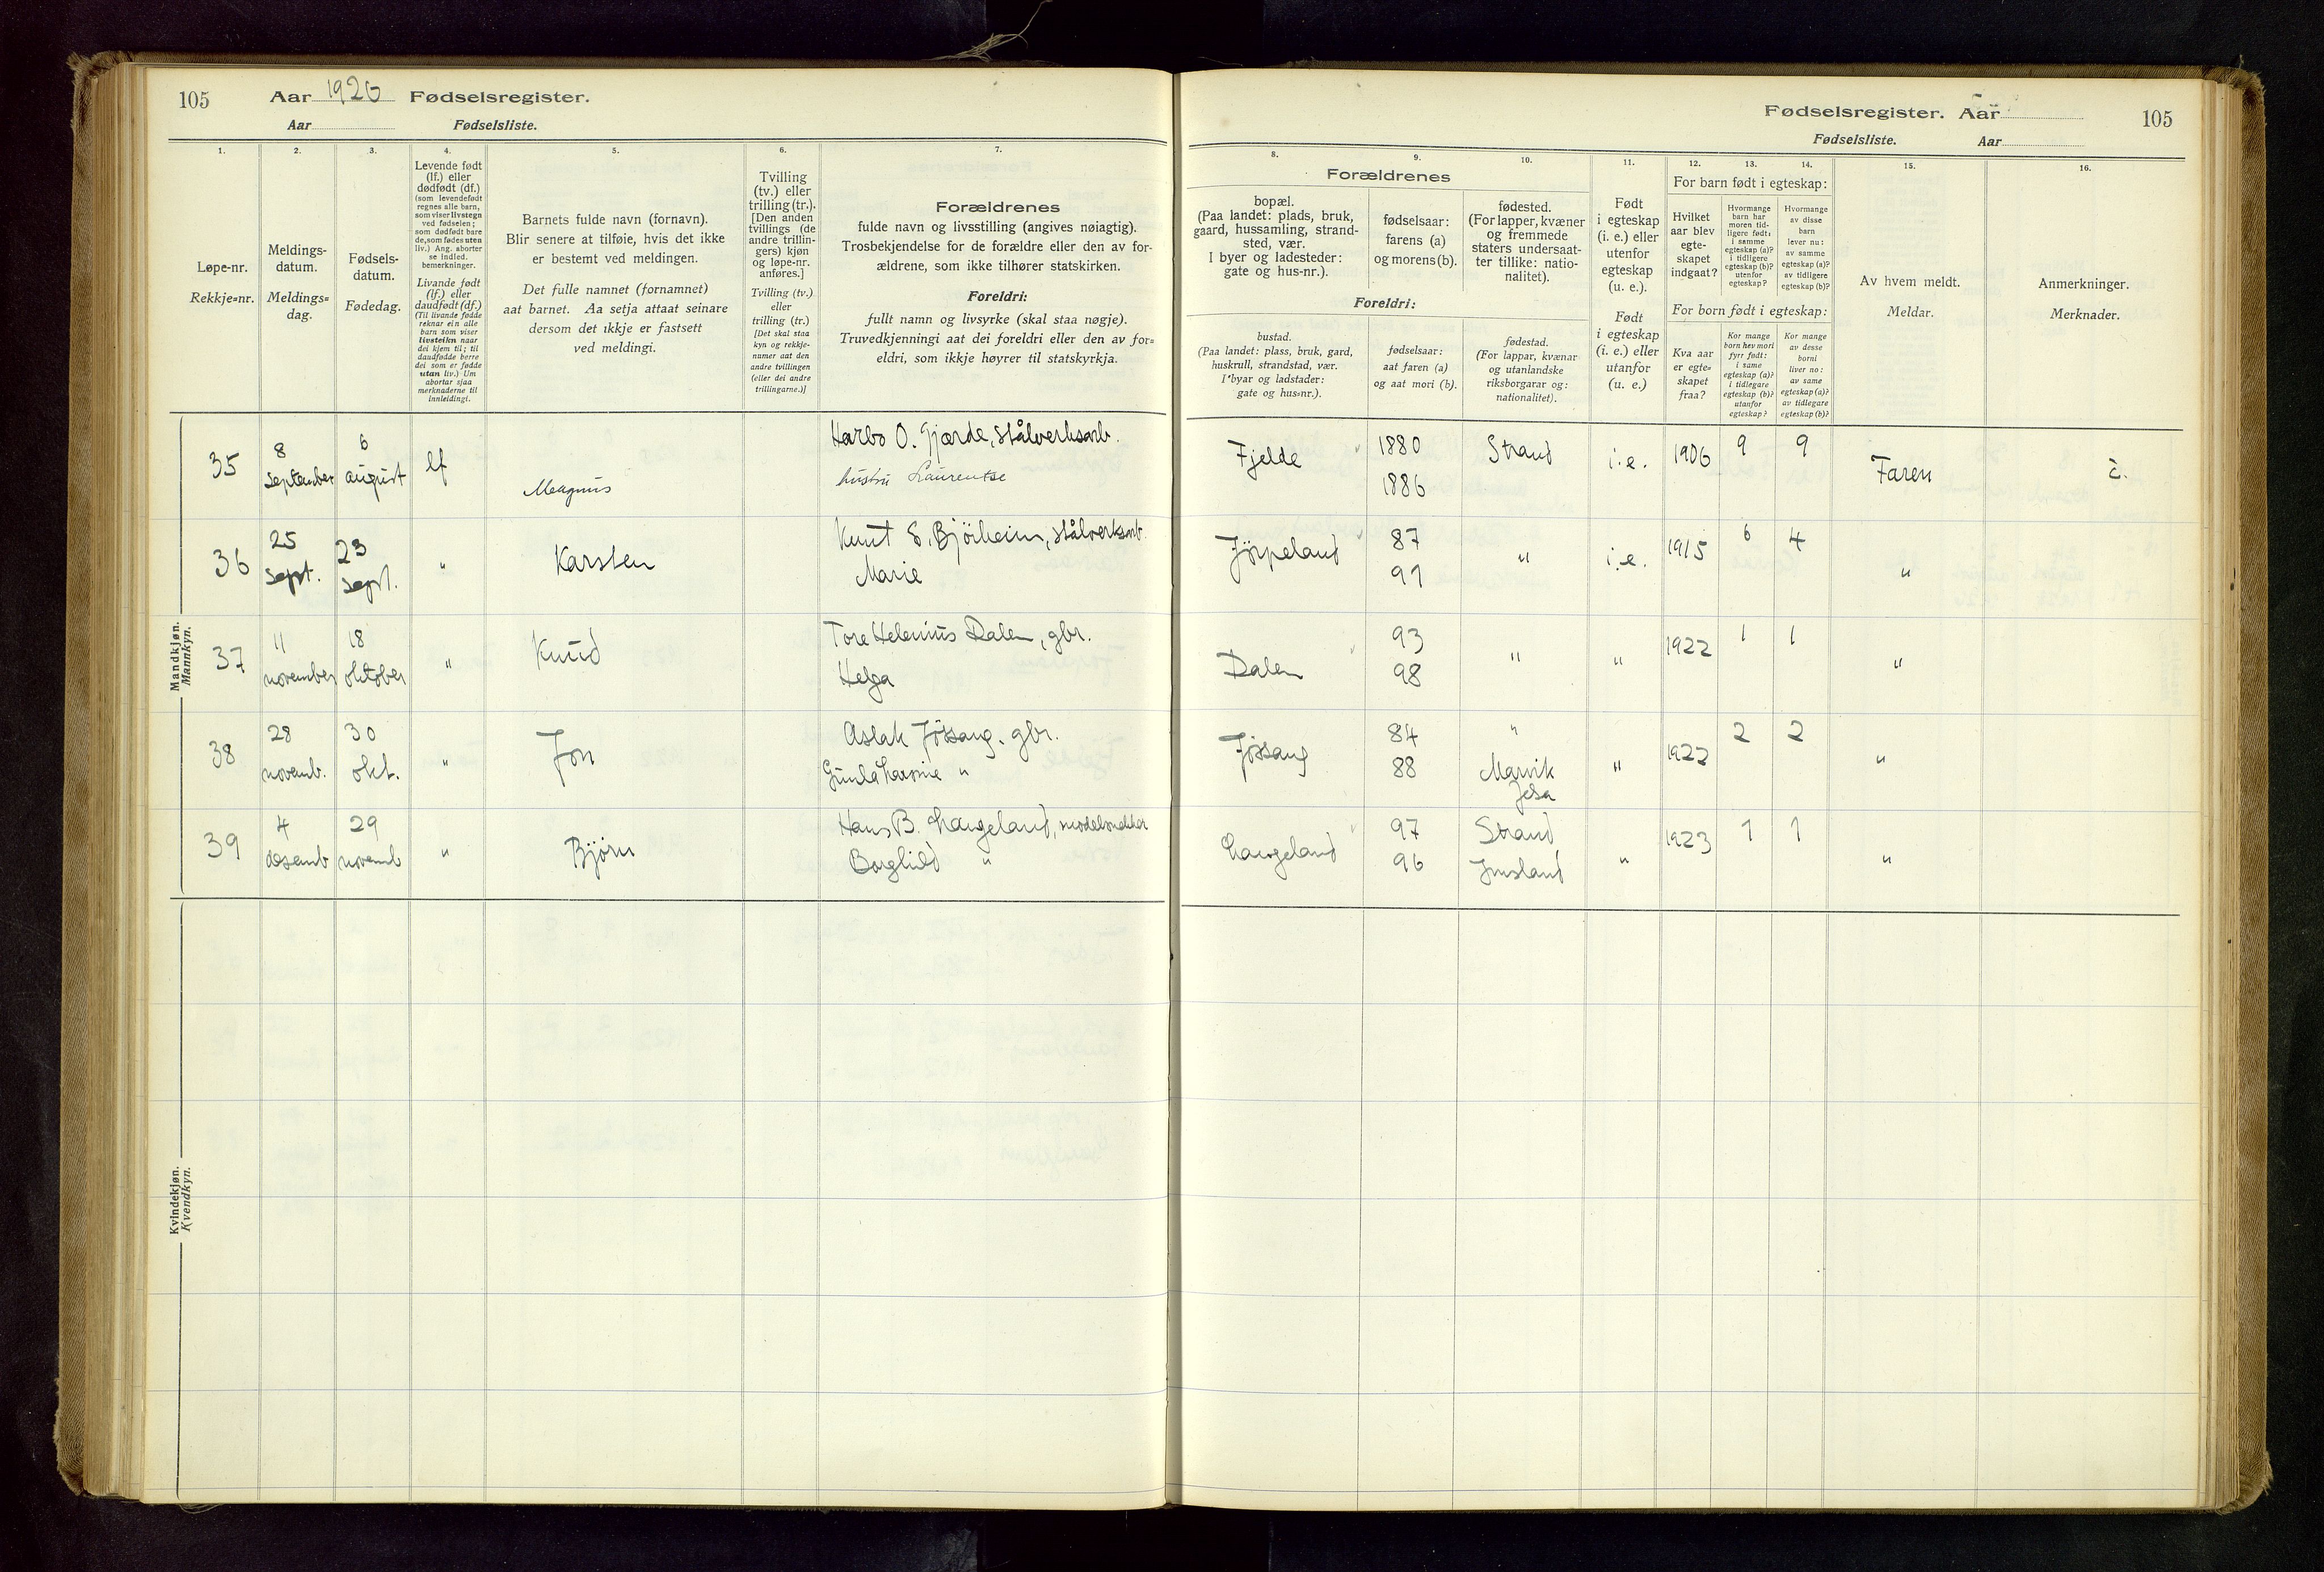 105 Aar 1926 Fødselsregister.
Aar Fødselsliste.
1. 2. 3. 4. 5. 6. 7.
Løpe-nr.
Rekkje=nr.
Meldings-
datum.
Meldings=
dag.
Fødsels-
datum.
Fødedag.
Levende født
(lf.) eller
dødfødt (df.)
(som levendefødt
regnes alle barn,
som viser livstegn
ved fødselen;
som dødfødt bare
de, som fødes uten
liv.) Ang. aborter
se indled.
bemerkninger.
Livande født
(lf.) eller
daudfødt (df.)
(Til livande fødde
reknar ein alle
barn som viser
livsteikn naar
dei kjem til; til
daudfødde berre
dei som er fødde
utan liv.) Um
abortar sjaa
merknaderne til
innleidingi.
Barnets fulde navn (fornavn).
Blir senere at tilføie, hvis det ikke
er bestemt ved meldingen.
Det fulle namnet (fornamnet)
aat barnet. Aa setja attaat seinare
dersom det ikkje er fastsett
ved meldingi.
Tvilling
(tv.) eller
trilling (tr.).
[Den anden
tvillings (de
andre trillin-
gers) kjøn
og løpe-nr.
anføres.]
Tvilling (tv.)
eller
trilling (tr.)
[Det skal staa
kyn og rekkje-
numer aat den
andre tvillingen
(eller dei andre
trillingarne.)]
Forældrenes
fulde navn og livsstilling (angives nøiagtig).
Trosbekjendelse for de forældre eller den av for-
ældrene, som ikke tilhører statskirken.
Foreldri:
fullt namn og livsyrke (skal staa nøgje).
Truvedkjenningi aat dei foreldri eller den av for=
eldri, som ikkje høyrer til statskyrkja.
Mandkjøn.
Mannkyn.
35 8 september 6 august lf Magnus
Harbo O. Gjærde, stålverksarb.
hustru Laurentse
36 25 sept. 23 sept. " Karsten
Knut S. Bjørheim, stålverksarb.
Marie
37 11 november 18 oktober " Knud
Tore Helenius Dalen, gbr.
Helga
38 28 novemb. 30 okt. " Jon
Aslak Jøssang, gbr.
"
39 4 desemb 29 novemb " Bjørn
Hans B. Langeland, modelsnekker
Borghild "
Kvindekjøn.
Kvendkyn.
Fødselsregister. Aar 105
Fødselsliste. Aar
8. 9. 10. 11. 12. 13. 14. 15. 16.
Forældrenes
bopæl.
(Paa landet: plads, bruk,
gaard, hussamling, strand-
sted, vær.
I byer og ladesteder:
gate og hus-nr.).
fødselsaar:
farens (a)
og morens (b).
fødested.
(For lapper, kvæner
og fremmede
staters undersaat-
ter tillike: natio-
nalitet).
Foreldri:
bustad.
(Paa landet: plass, bruk, gard,
huskrull, strandstad, vær.
I byar og ladstader:
gate og hus=nr.).
fødselsaar:
aat faren (a)
og aat mori (b).
fødestad.
(For lappar, kvænar
og utanlandske
riksborgarar og:
nationalitet).
Født
i egteskap
(i. e.) eller
utenfor
egteskap
(u. e.).
Født
i egteskap
(i. e.) eller
utanfor
(u. e.)
For barn født i egteskap:
Hvilket
aar blev
egte-
skapet
indgaat?
Hvormange
barn har
moren tid-
ligere født:
i samme
egteskap (a)?
i tidligere
egteskap (b)?
utenfor
egteskap?
Hvormange
av disse
barn
lever nu:
av samme
egteskap (a)?
av tidligere
egteskap (b)?
For born født i egteskap:
Kva aar
er egte=
skapet
fraa?
Kor mange
born hev mori
fyrr født:
i same
egteskap (a)?
i tidlegare
egteskap (b)?
utanfor
egteskap?
Kor mange
av desse
borni
liver no:
av same
egteskap (a)?
av tidlegare
egteskap (b)?
Av hvem meldt.
Meldar.
Anmerkninger.
Merknader.
Fjelde 1880 1886 Strand i.e. 1906 9 9 Faren
Jørpeland 87 91 " i.e. 1915 6 4 "
Dalen 93 98 " " 1922 1 1 "
Jøssang 84 88 " Marvik Jelsa " 1922 2 2 "
Langeland 97 96 Strand Imsland " 1923 1 1 "